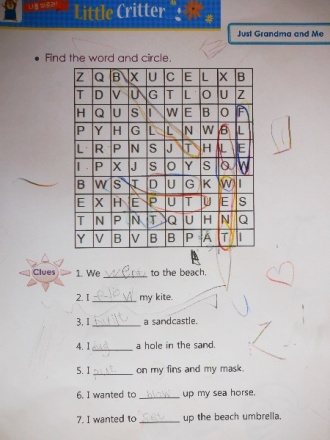 Little Critter
Just Grandma and Me
• Find the word and circle.
Z Q B X U C E L X B
T D V U G T L O U Z
H Q U S I W E B O F
P Y H G L L N W B L
L R P N S J T H L E
I P X J S O Y S O W
B W S T D U G K W I
E X H E P U T U E S
T N P N T Q U H N Q
Y V B V B B P A T I
Clues
1. We went to the beach.
2. I flew my kite.
3. I built a sandcastle.
4. I dug a hole in the sand.
5. I put on my fins and my mask.
6. I wanted to blow up my sea horse.
7. I wanted to set up the beach umbrella.